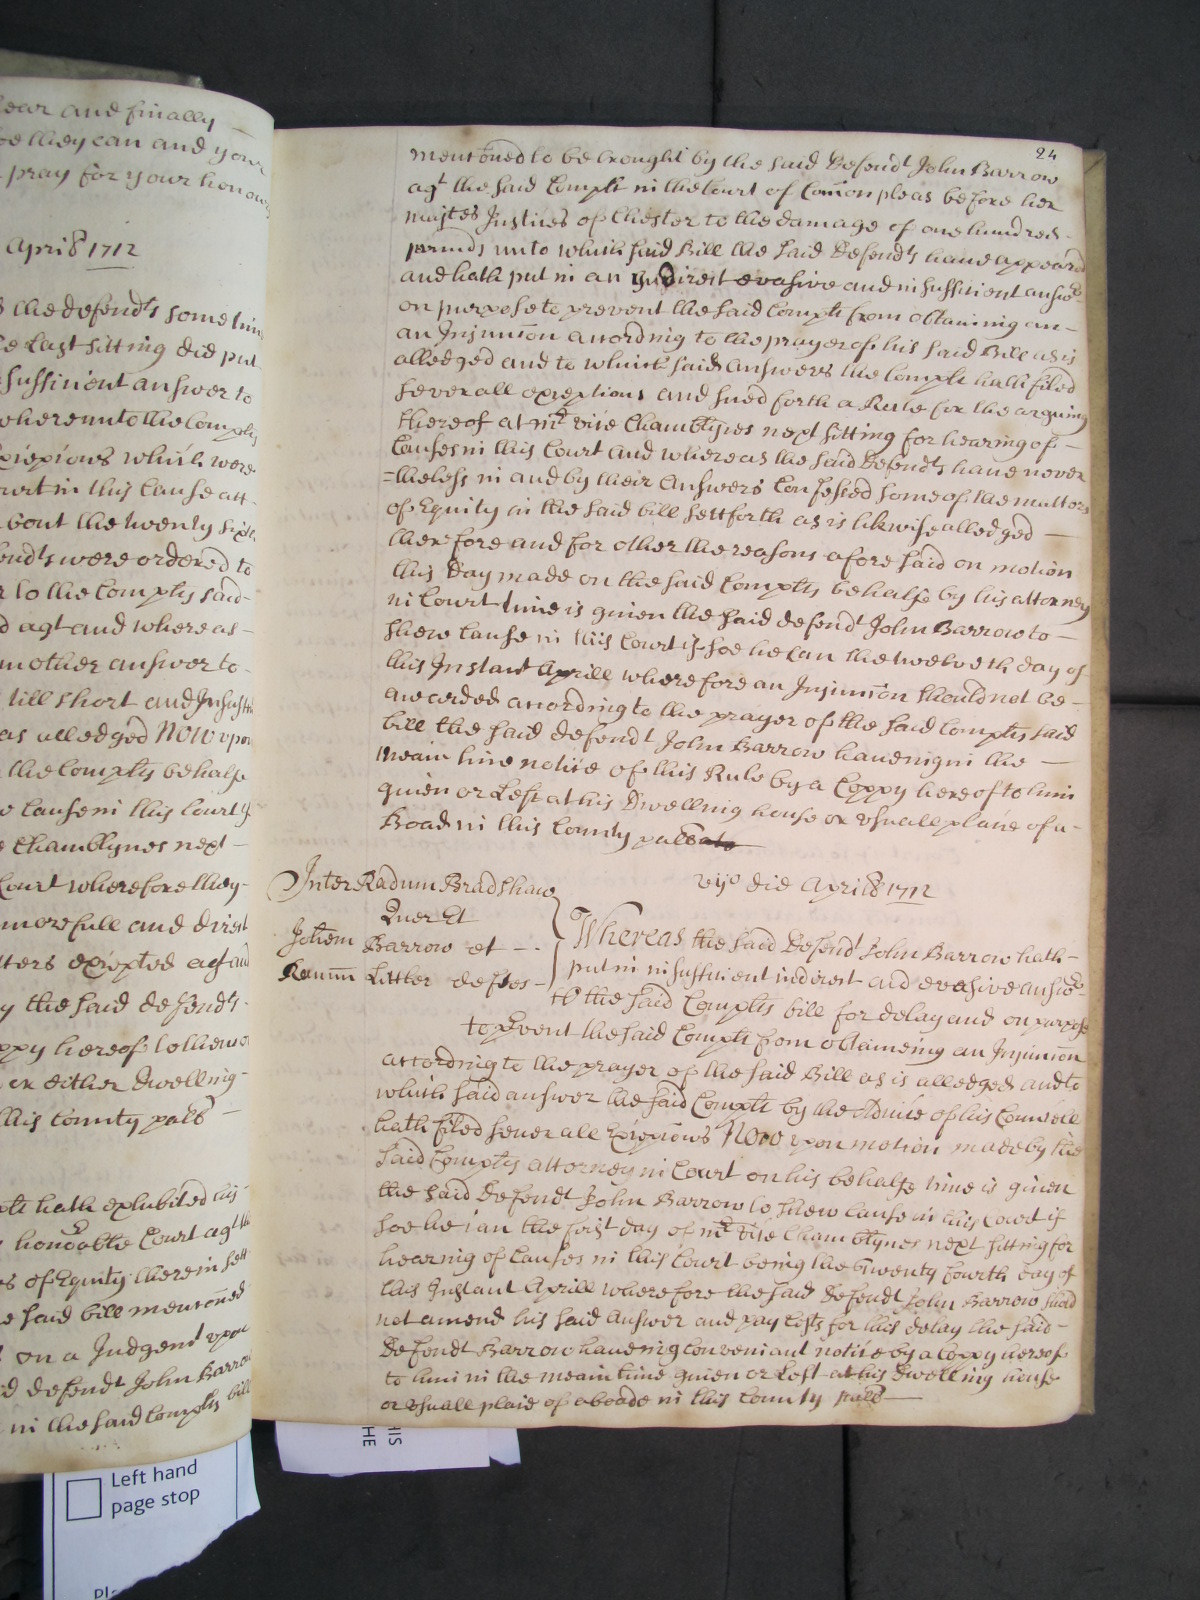 ear and finally
they can and your
pray for your honors
Aprill 1712
the defendts sometime
Last sitting did put
sufficient answer to
whereunto the Complts
exceptions which were
Court in this Cause att
bout the twenty sixth
fendts were ordered to
to the Complts said
agt and whereas
another answer to
till short and Insuffi
as alledged Now upon
the Complts behalfe
Cause in this Court if
Chamblynes next
Court wherefore they
more full and direct
tters excepted agt and
the said defendts
Coppy hereof to them or
or either dwelling
this County palt
hath exhibited his
honoble Court agt the
of Equity therein sett
said bill mentoned
on a Judgent upon
defendt John Barrow
in the said Complts bill
24
mentoned to be brought by the said Defendt John Barrow
agt the said Complt in the Court of Comon pleas before her
majtes Justices of Chester to the damage of one hundred
pounds unto which said Bill the said Defendts have appeard
and hath put in an Indirect evasive and insufficient answer
on purpose to prevent the said Complt from obtaining an
an Injuncon according to the prayer of his said Bill as is
alledged and to which said Answers the Complt hath filed
severall exceptions and sued forth a Rule for the arguing
thereof at mr vice Chamblynes next sitting for hearing of
Causes in this Court and whereas the said Defendts have never
=theless in and by their Answers Confessed some of the matters
of Equity in the said bill sett forth as is likwise alledged
therefore and for other the reasons afore said on motion
this Day made on the said Complts behalfe by his attorney
in Court time is given the said defendt John Barrow to
shew Cause in this Court if soe he Can the twelveth day of
this Instant Aprill wherefore an Injuncon should not be
awarded according to the prayer of the said Complts said
bill the said defendt John Barrow haveing in the
mean time notice of this Rule by a Coppy hereof to him
given or Left at his Dwelling house or usuall place of a
Boad in this County palt
vijo die Aprill 1712
Inter Radum Bradshaw
Quer Et
Johem Barrow et
Ranum Littler defes
Whereas the said Defendt John Barrow hath
put in insufficient indirect and evasive answer
to the said Complts bill for delay and on purpose
to pvent the said Complt from obtaineing an Injuncon
according to the prayer of the said Bill as is alledged and to
which said answer the said Complt by the Advice of his Councell
hath filed severall Excepcons Now upon motion made by the
said Complts attorney in Court on his behalfe time is given
the said Defendt John Barrow to shew Cause in this Court if
soe he can the first day of mr vice Chamblynes next sitting for
hearing of Causes in this Court being the twenty fourth day of
this Instant Aprill wherefore the said Defendt John Barrow shod
not amend his said Answer and pay Costs for this delay the said
Defendt Barrow haveing conveniant notice by a Coppy hereof
to him in the mean time given or Left at his Dwelling house
or usuall place of aboade in this County palt
Left hand
page stop
HIS
THE